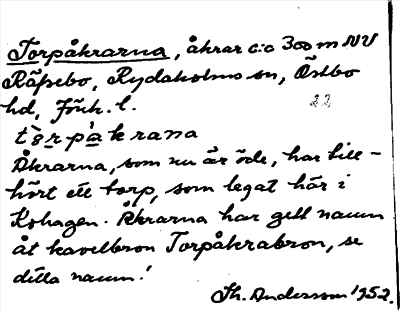 Torpåkrarna, åkrar c:a 300 m NV
Räpsebo, Rydaholms sn, Östbo
hd, Jönk. l.
22
tòrpákrana
Åkrarna, som nu är öde, har till-
hört ett torp, som legat här i
Kohagen. Åkrarna har gett namn
åt kavelbron Torpåkrabron, se
detta namn!
Th. Andersson 1952.